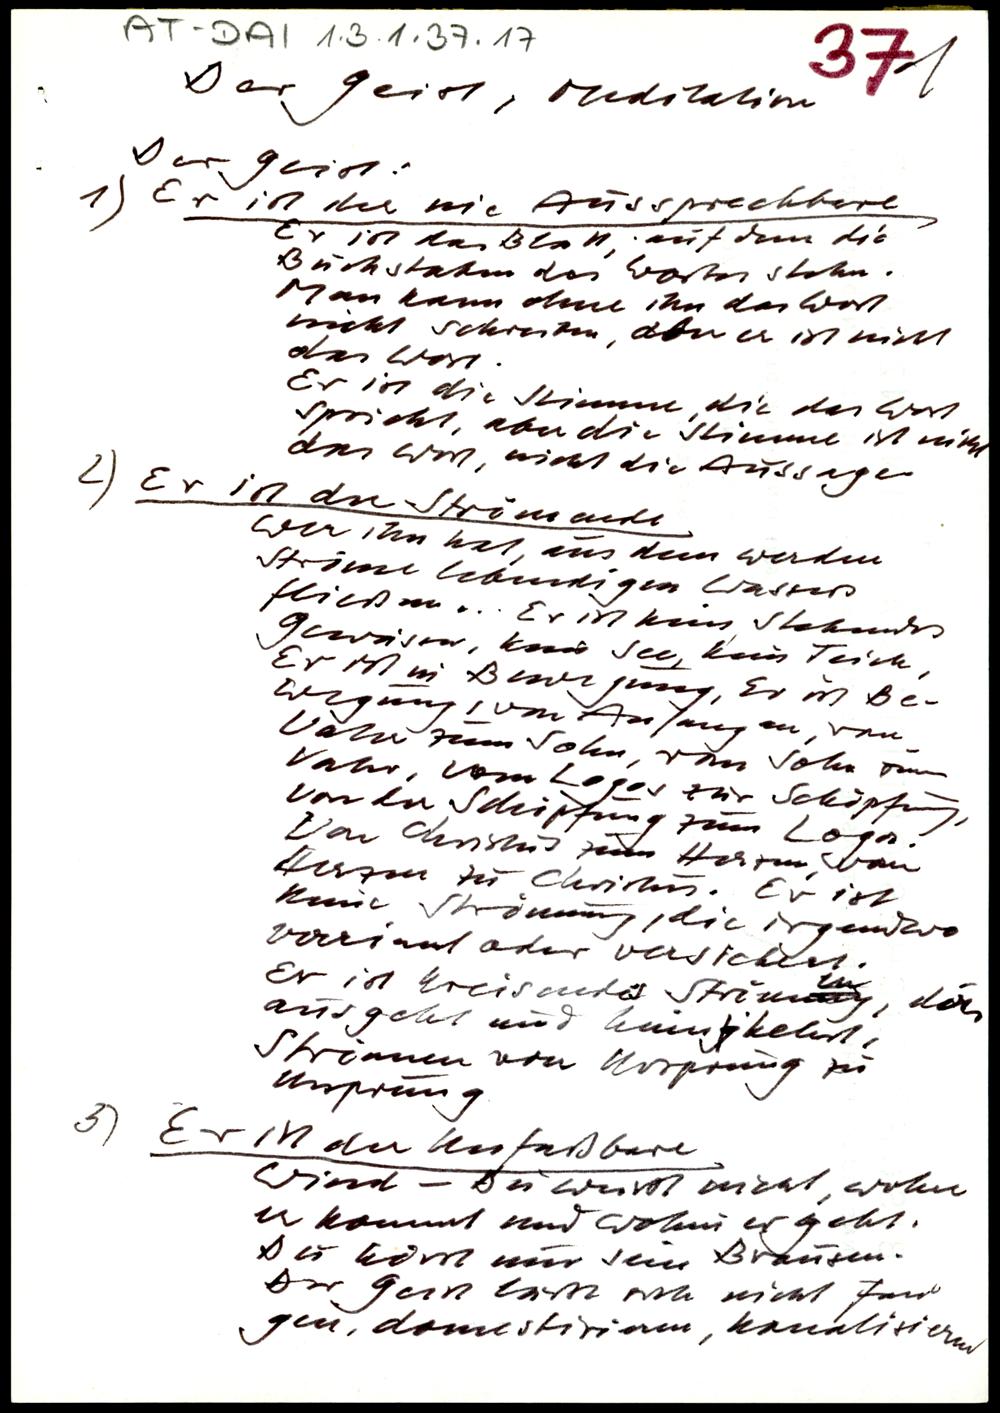 AT-DAI 1.3.1.37.17
37 1
Der Geist, Meditation
Der Geist:
1) Er ist der nie Aussprechbare
Er ist das Blatt, auf dem die
Buchstaben des Wortes stehn.
Man kann ohne ihn das Wort
nicht schreiben, aber er ist nicht
das Wort.
Er ist die Stimme, die das Wort
spricht, aber die Stimme ist nicht
das Wort, nicht die Aussage
2) Er ist der Strömende
Wer ihn hat, aus dem werden
Ströme lebendigen Wassers
fließen... Er ist kein stehendes
Gewässer, kein See, kein Teich,
Er ist in Bewegung, Er ist Be-
wegung, von Anfang an, vom
Vater zum Sohn, vom Sohn zum
Vater, vom Logos zur Schöpfung,
von der Schöpfung zum Logos.
Von Christus zum Herzen, vom
Herzen zu Christus. Er ist
keine Strömung, die irgendwo
verrinnt oder versickert.
Er ist kreisendes Strömen, das
ausgeht und heimkehrt,
Strömen von Ursprung zu
Ursprung
3) Er ist der Unfaßbare
Wind – Du weisst nicht, woher
er kommt und wohin er geht.
Du hörst nur sein Brausen.
Der Geist lässt sich nicht fan
gen, domestizieren, kanalisieren